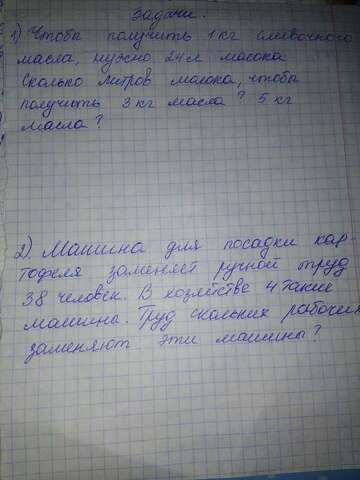 Задачи.
1) Чтоба получить 1 кг сливочного
масла, нужно 24 л молока
Сколько литров молока, чтоба
получить 3 кг масла? 5 кг
масла?
2) Машина для посадки кар-
тофеля заменяет ручной труд
38 человек. В хозяйстве 4 такие
машины. Труд скольких рабочих
заменяют эти машины?